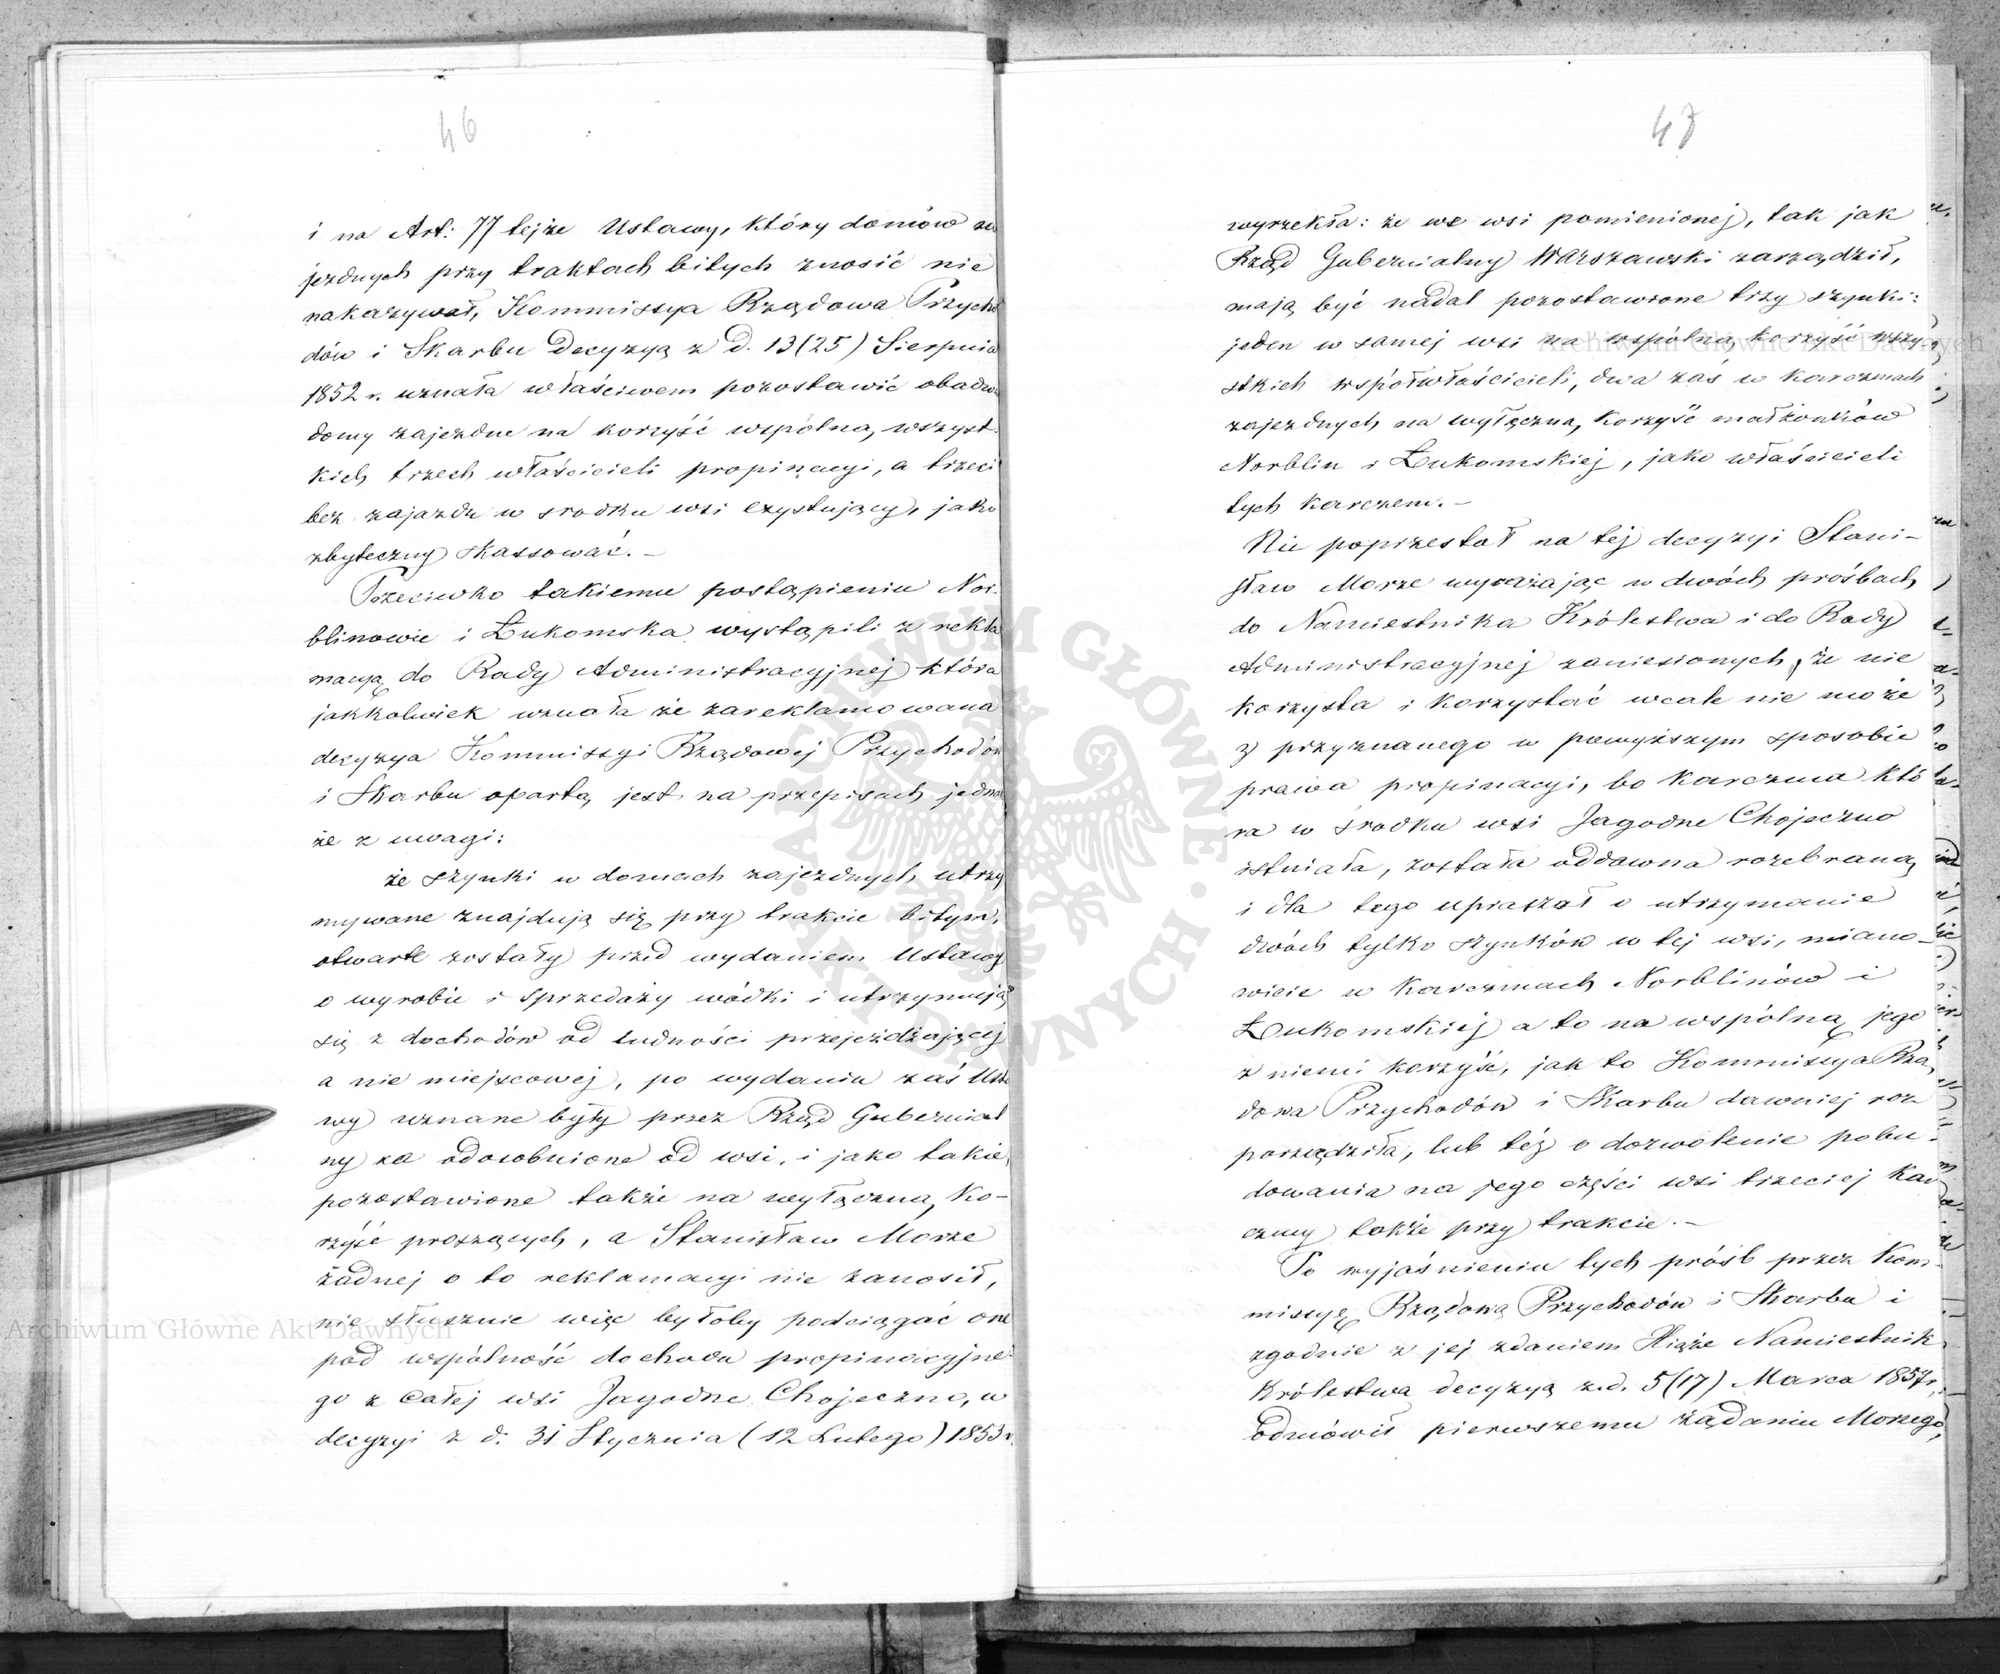 46
i na Art: 77 tejże Ustawy, który domów za
jezdnych przy traktach bitych znosić nie
nakazywał, Kommissya Rządowa Przycho
dów i Skarbu decyzyą z d. 13 (25) Sierpnia
1852 r. uznała właściwem pozostawić obadwa
domy zajezdne na korzyść wspólną wszyst
kich trzech właścicieli propinacyi, a trzeci
bez zajazdu w środku wsi exystujący, jako
zbyteczny skassować. –
Przeciwko takiemu postąpieniu Nor-
blinowie i Łukomska wystąpili z rekla
macyą do Rady Administracyjnej która
jakkolwiek uznała że zareklamowana
decyzya Kommissyi Rządowej Przychodów
i Skarbu opartą jest na przepisach jedna
że z uwagi:
że szynki w domach zajezdnych utrzy
mywane znajdują się przy trakcie bitym,
otwarte zostały przed wydaniem Ustawy
o wyrobie i sprzedaży wódki i utrzymują
się z dochodów od ludności przejeżdżającej
a nie miejscowej, po wydaniu zaś Usta
wy uznane były przez Rząd Gubernial
ny za odosobnione od wsi, i jako takie,
pozostawione także na wyłączną ko-
rzyść proszących, a Stanisław Morze
żadnej o to reklamacyi nie zanosił,
nie słusznie więc byłoby podciągać one
pod wspólność dochodu propinacyjne-
go z całej wsi Jagodne Chojeczno, w
decyzyi z d. 31 Stycznia (12 Lutego) 1853 r.
47
wyrzekła: że we wsi pomienionej, tak jak
Rząd Gubernialny Warszawski zarządził,
mają być nadal pozostawione trzy szynki:
jeden w samej wsi na wspólną korzyść wszy
stkich współwłaścicieli, dwa zaś w karczmach
zajezdnych na wyłączną korzyść małżonków
Norblin i Łukomskiej, jako właścicieli
tych karczem. –
Nie poprzestał na tej decyzyi Stani-
sław Morze wyrażając w dwóch prośbach
do Namiestnika Królestwa i do Rady
Administracyjnej zaniesionych, że nie
korzysta i korzystać wcale nie może
z przyznanego w powyższym sposobie
prawa propinacyi, bo karczma któ
ra w środku wsi Jagodne Chojeczno
istniała, została oddawna rozebraną
i dla tego upraszał o utrzymanie
dwóch tylko szynków w tej wsi, miano-
wicie w karczmach Norblinów i
Łukomskiej a to na wspólną jego
z niemi korzyść, jak to Kommissya Rzą
dowa Przychodów i Skarbu dawniej roz
porządziła, lub też o dozwolenie pobu-
dowania na jego części wsi trzeciej kar
czmy także przy trakcie. –
Po wyjaśnieniu tych próśb przez Kom-
missyę Rządową Przychodów i Skarbu i
zgodnie z jej zdaniem Xiąże Namiestnik
Królestwa decyzyą z d. 5 (17) Marca 1857 r.
odmówił pierwszemu żądaniu Morzego,
Archiwum Główne Akt Dawnych
Archiwum Główne Akt Dawnych
ARCHIWUM GŁÓWNE · AKT DAWNYCH ·